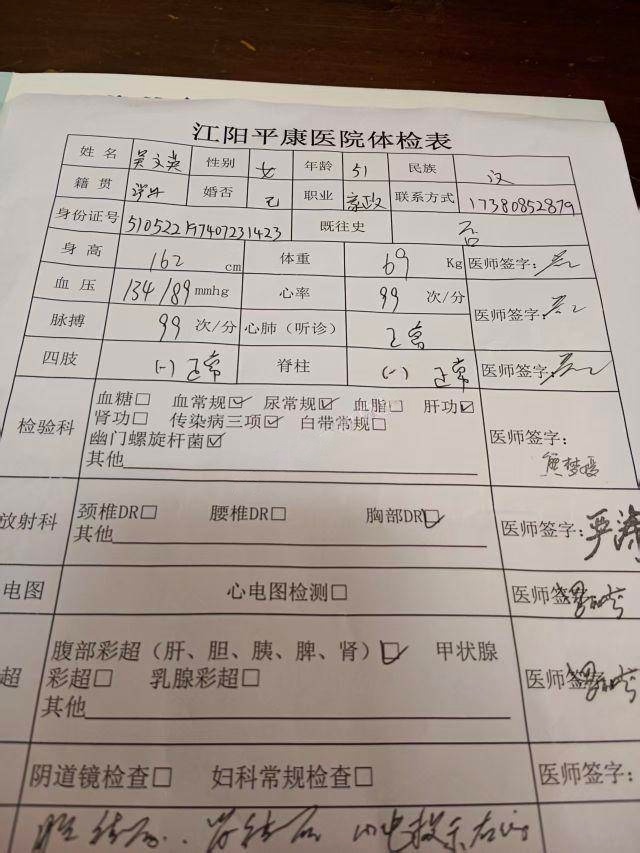 江阳平康医院体检表
姓名 吴文英 性别 女 年龄 51 民族 汉
籍贯 婚否 已 职业 家政 联系方式 17380852879
身份证号 510522197407231423 既往史 否
身高 162 cm 体重 69 Kg 医师签字:
血压 134/89 mmhg 心率 99 次/分
脉搏 99 次/分 心肺（听诊） 正常 医师签字:
四肢 (-) 正常 脊柱 (-) 正常 医师签字:
血糖□ 血常规☑ 尿常规☑ 血脂□ 肝功☑
检验科 肾功□ 传染病三项☑ 白带常规□ 医师签字:
幽门螺旋杆菌☑
其他
放射科 颈椎DR□ 腰椎DR□ 胸部DR☑ 医师签字:
其他
电图 心电图检测□ 医师签
腹部彩超（肝、胆、胰、脾、肾）☑ 甲状腺
超 彩超□ 乳腺彩超□ 医师签
其他
阴道镜检查□ 妇科常规检查□ 医师签字: